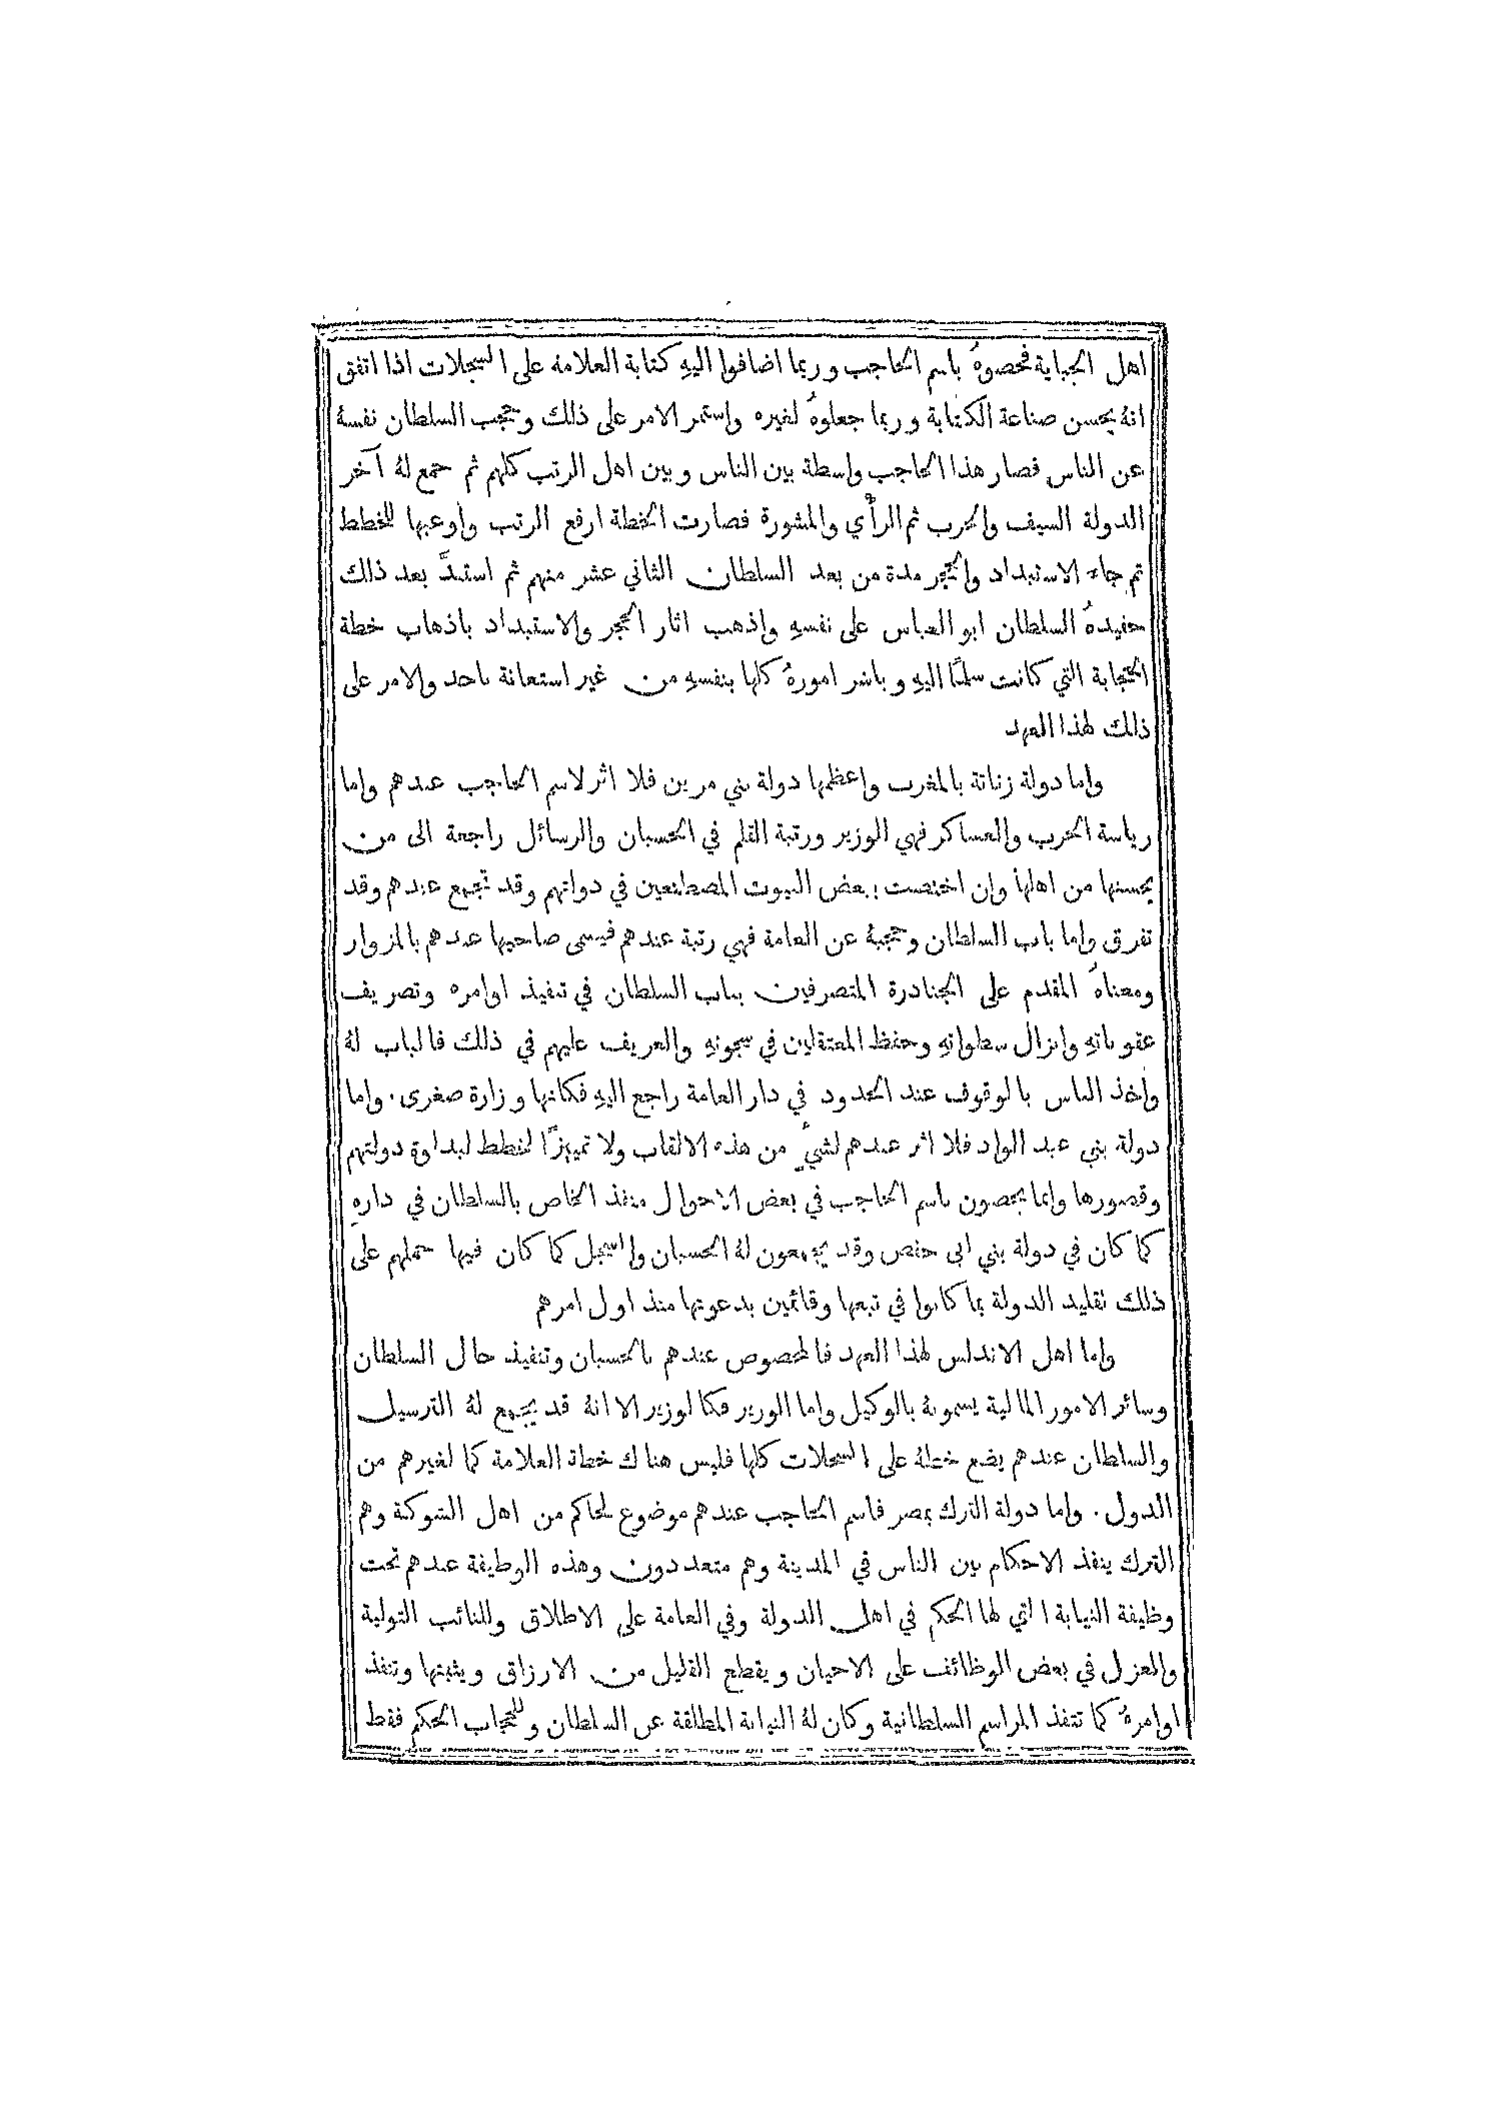 اهل الجباية فخصوهُ باسم الحاجب وربما اضافوا اليهِ كتابة العلامة على السجلات اذا اتفق
انهُ يحسن صناعة الكتابة وربما جعلوهُ لغيره واستمر الامر على ذلك وحجب السلطان نفسهُ
عن الناس فصار هذا الحاجب واسطة بين الناس وبين اهل الرتب كلهم ثم جمع لهُ آخر
الدولة السيف والحرب ثم الرأْي والمشورة فصارت الخطة ارفع الرتب واوعبها للخطط
ثم جاء الاستبداد والحجر مدة من بعد السلطان الثاني عشر منهم ثم استبدَّ بعد ذلك
حفيدهُ السلطان ابو العباس على نفسهِ واذهب اثار الحجر والاستبداد باذهاب خطة
الحجابة التي كانت سلمًا اليهِ وباشر امورهُ كلها بنفسهِ من غير استعانة باحد والامر على
ذلك لهذا العهد
واما دولة زناتة بالمغرب واعظمها دولة بني مرين فلا اثر لاسم الحاجب عندهم واما
رياسة الحرب والعساكر فهي للوزير ورتبة القلم في الحسبان والرسائل راجعة الى من
يحسنها من اهلها وان اختصت ببعض البيوت المصطنعين في دولتهم وقد تجمع عندهم وقد
تفرق واما باب السلطان وحجبهُ عن العامة فهي رتبة عندهم فيسمى صاحبها عندهم بالمزوار
ومعناهُ المقدم على الجنادرة المتصرفين بباب السلطان في تنفيذ اوامره وتصريف
عقوباتهِ وانزال سطواتهِ وحفظ المعتقلين في سجونهِ والعريف عليهم في ذلك فالباب لهُ
واخذ الناس بالوقوف عند الحدود في دار العامة راجع اليهِ فكانها وزارة صغرى. واما
دولة بني عبد الواد فلا اثر عندهم لشيءٍ من هذه الالقاب ولا تمييزًا لخطط لبداوة دولتهم
وقصورها وانما يخصون باسم الحاجب في بعض الاحوال منفذ الخاص بالسلطان في دارهِ
كما كان في دولة بني ابي حفص وقد يجمعون لهُ الحسبان والسجل كما كان فيها حملهم على
ذلك تقليد الدولة بما كانوا في تبعها وقائمين بدعوتها منذ اول امرهم
واما اهل الاندلس لهذا العهد فالمخصوص عندهم بالحسبان وتنفيذ حال السلطان
وسائر الامور المالية يسمونهُ بالوكيل واما الوزير فكالوزير الا انهُ قد يجمع لهُ الترسيل
والسلطان عندهم يضع خطهُ على السجلات كلها فليس هناك خطة العلامة كما لغيرهم من
الدول. واما دولة الترك بمصر فاسم الحاجب عندهم موضوع لحاكم من اهل الشوكة وهم
الترك ينفذ الاحكام بين الناس في المدينة وهم متعددون وهذه الوظيفة عندهم تحت
وظيفة النيابة التي لها الحكم في اهل الدولة وفي العامة على الاطلاق وللنائب التولية
والعزل في بعض الوظائف على الاحيان ويقطع القليل من الارزاق ويثبتها وتنفذ
اوامرهُ كما تنفذ المراسم السلطانية وكان لهُ النيابة المطلقة عن السلطان وللحجاب الحكم فقط